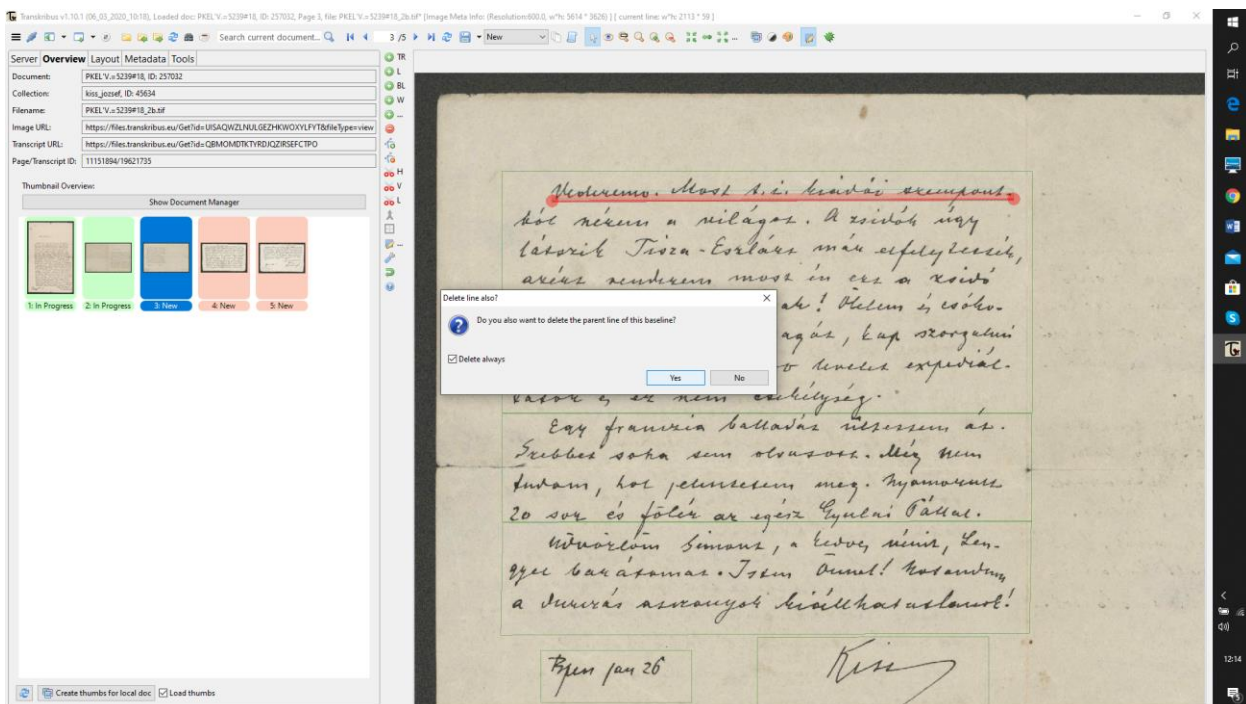 Transkribus v1.10.1 (06_03_2020_10:18), Loaded doc: PKEL'V.=5239#18, ID: 257032, Page 3, file: PKEL'V.=5239#18_2b.tif* [Image Meta Info: (Resolution:600.0, w*h: 5614 * 3626) ] [ current line: w*h: 2113 * 59 ]
Search current document... 3 /5 New
Server Overview Layout Metadata Tools
Document: PKEL'V.=5239#18, ID: 257032
Collection: kiss_jozsef, ID: 45634
Filename: PKEL'V.=5239#18_2b.tif
Image URL: https://files.transkribus.eu/Get?id=UISAQWZLNULGEZHKWOXYLFYT&fileType=view
Transcript URL: https://files.transkribus.eu/Get?id=QBMOMDTKTYRDJQZIRSEFCTPO
Page/Transcript ID: 11151894/19621735
Thumbnail Overview:
Show Document Manager
1: In Progress 2: In Progress 3: New 4: New 5: New
TR
L
BL
W
...
H
V
L
...
Delete line also?
Do you also want to delete the parent line of this baseline?
Delete always
Yes No
Vederemo. Most t. i. kiadói szempont-
ból nézem a világot. A zsidók úgy
látszik Tisza-Eszlárt már elfelejtették,
azért rendezem most én ezt a zsidó
Ölelem és csóko-
kap szorgalmi
levelet expediál-
és ez nem csekélység.
Egy franczia balladát ültettem át.
Szebbet soha sem olvasott. Még nem
tudom, hol jelentetem meg. Nyomorult
20 sor és fölér az egész Gyulai Pállal.
Üdvözlöm Simont, a kedves nénit, Len-
gyel barátomat. Isten Önnel!
a asszonyok kiállhatatlanok!
Bpen jan 26
Kiss
Create thumbs for local doc Load thumbs
12:14